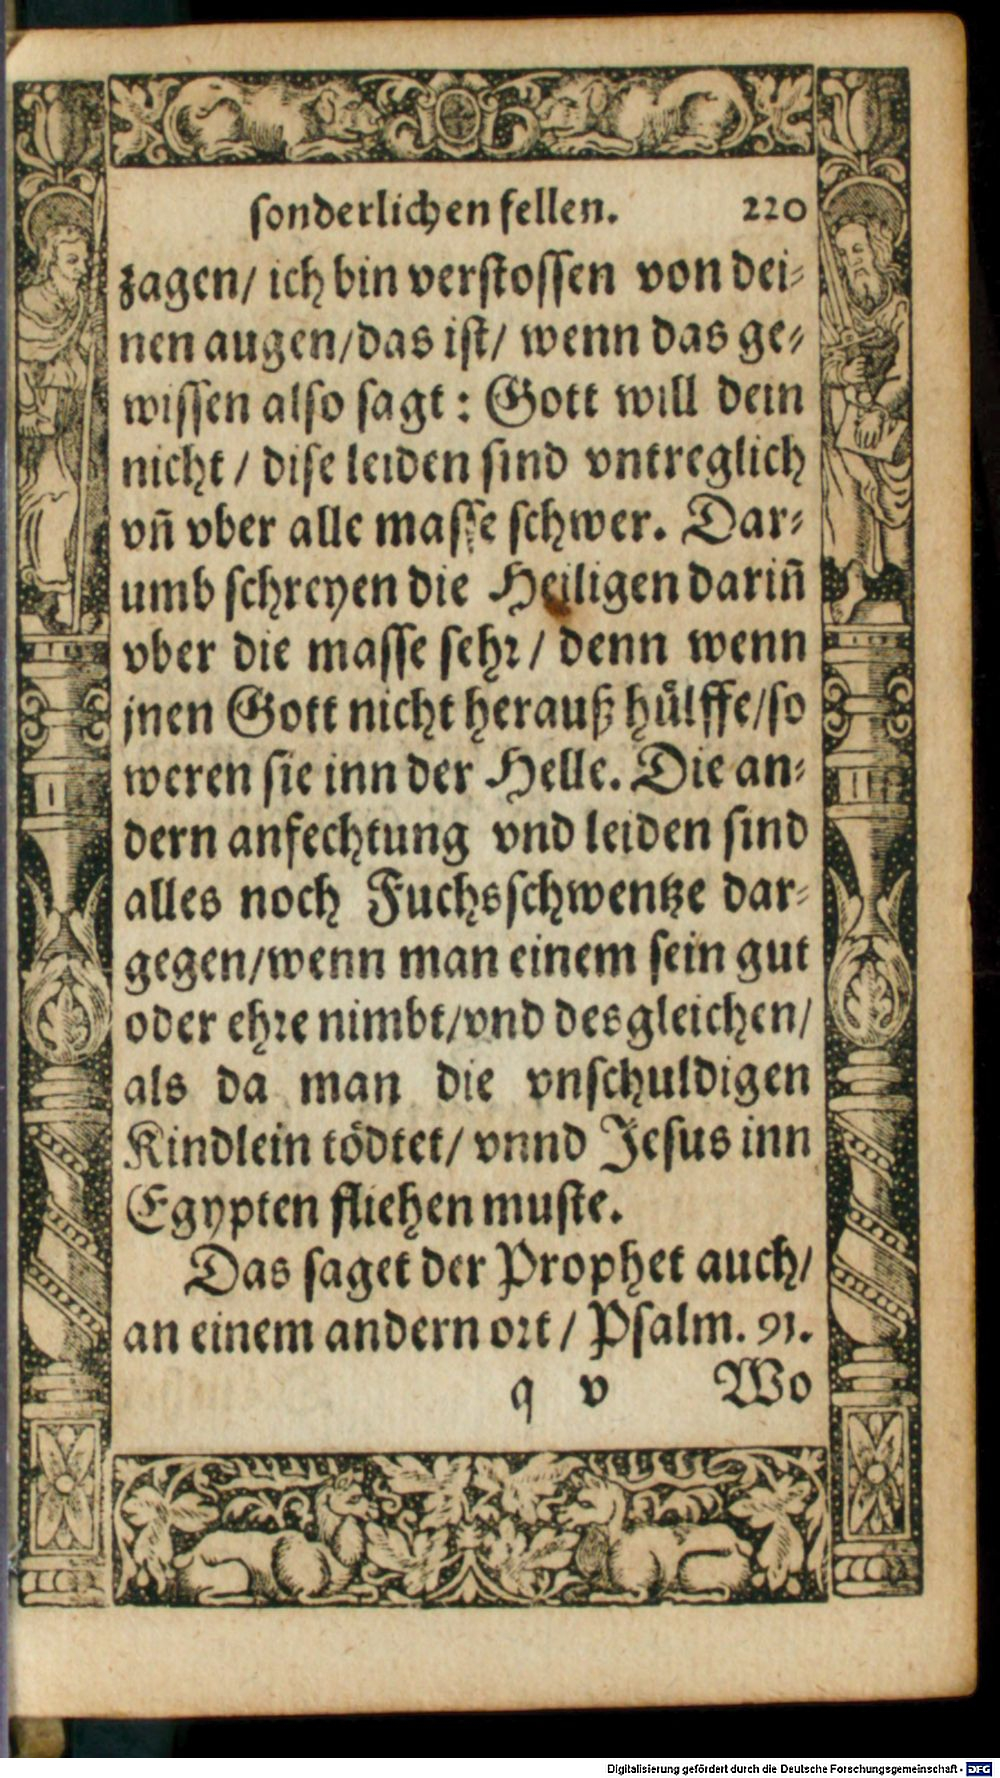 sonderlichen fellen. 220
zagen/ ich bin verstossen von dei⸗
nen augen/das ist/ wenn das ge⸗
wissen also sagt: Gott will dein
nicht / dise leiden sind vntreglich
vñ vber alle masse schwer. Dar⸗
umb schreyen die Heiligen dariñ
vber die masse sehr / denn wenn
jnen Gott nicht herauß hülffe/so
weren sie inn der Helle. Die an⸗
dern anfechtung vnd leiden sind
alles noch Fuchsschwentze dar⸗
gegen/wenn man einem sein gut
oder ehre nimbt/vnd desgleichen/
als da man die vnschuldigen
Kindlein tödtet/ vnnd Jesus inn
Egypten fliehen muste.
Das saget der Prophet auch/
an einem andern ort / Psalm. 91.
q v Wo
Digitalisierung gefördert durch die Deutsche Forschungsgemeinschaft - DFG